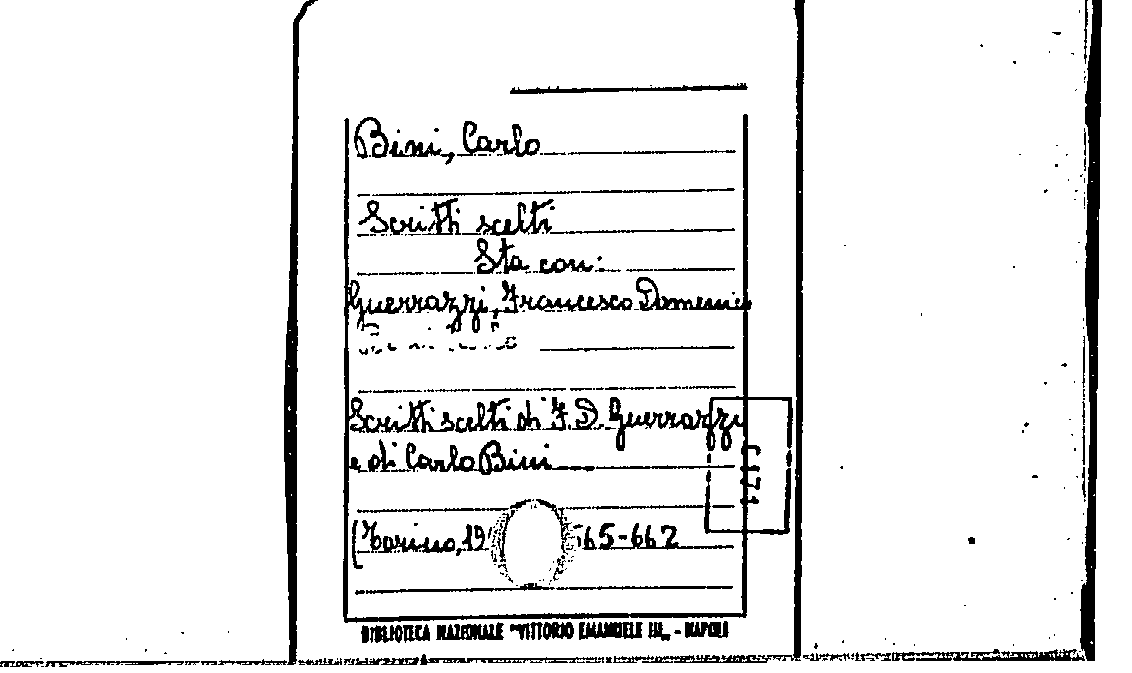 Bini, Carlo
Scritti scelti
Sta con:
Guerrazzi, Francesco Domenico
Scritti scelti di F. D. Guerrazzi
e di Carlo Bini
(Torino, 19 565-662
BIBLIOTECA NAZIONALE "VITTORIO EMANUELE III„ - NAPOLI